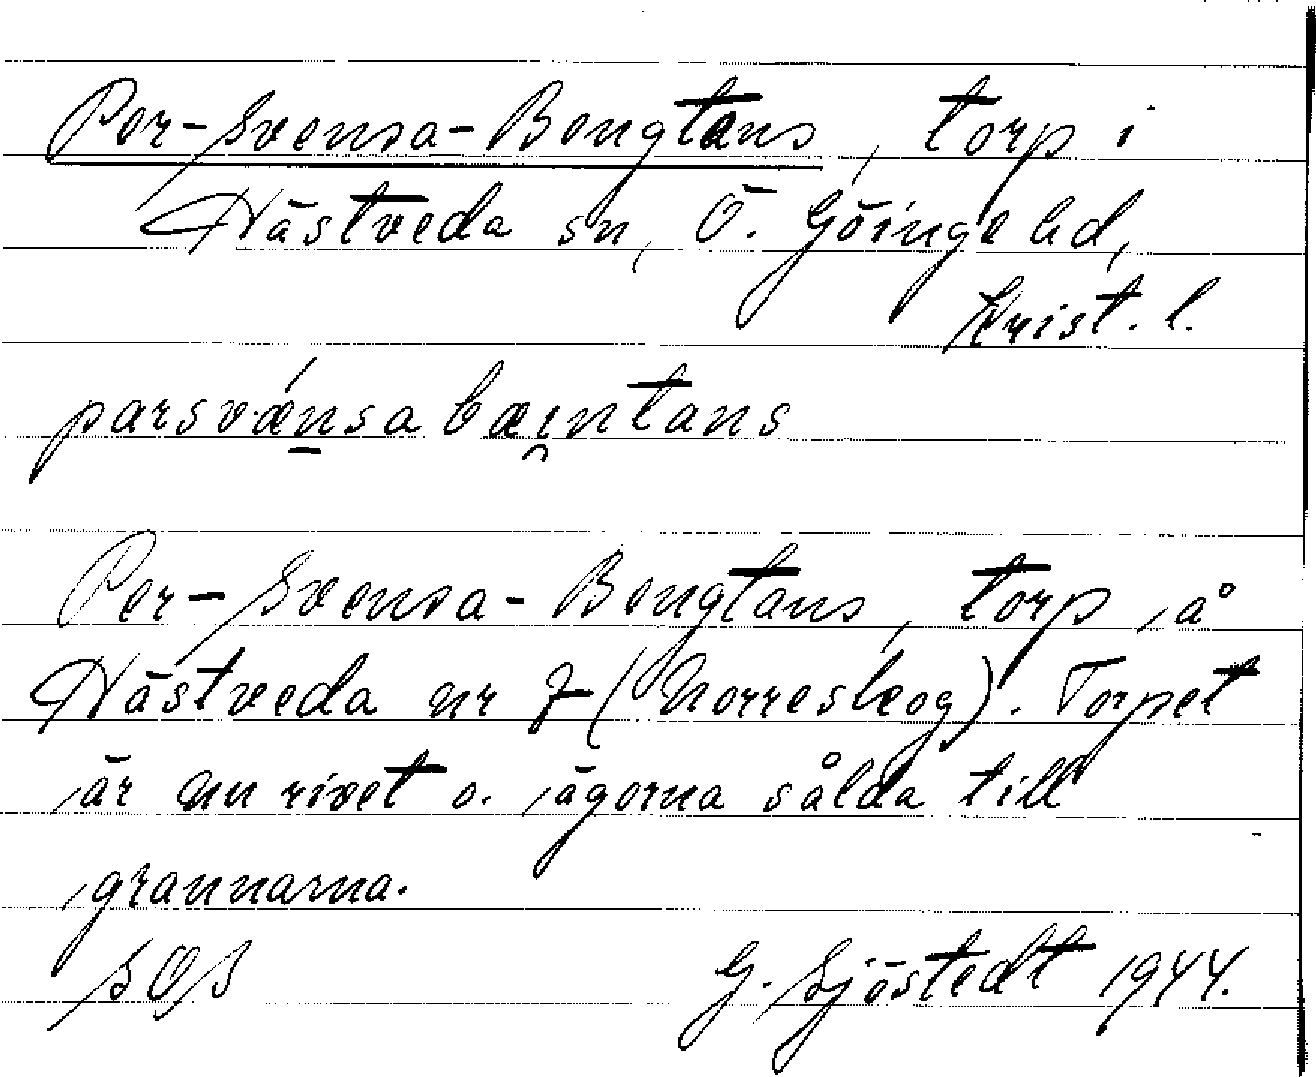 Per-Svensa-Bengtans, torp i
Hästveda sn, Ö. Göinge hd,
Krist. l.
parsvǽnsa bæi̯ntans
Per-Svensa-Bengtans, torp å
Hästveda nr 7 (Norreskog). Torpet
är nu rivet o. ägorna sålda till
grannarna.
SOS G. Sjöstedt 1944.